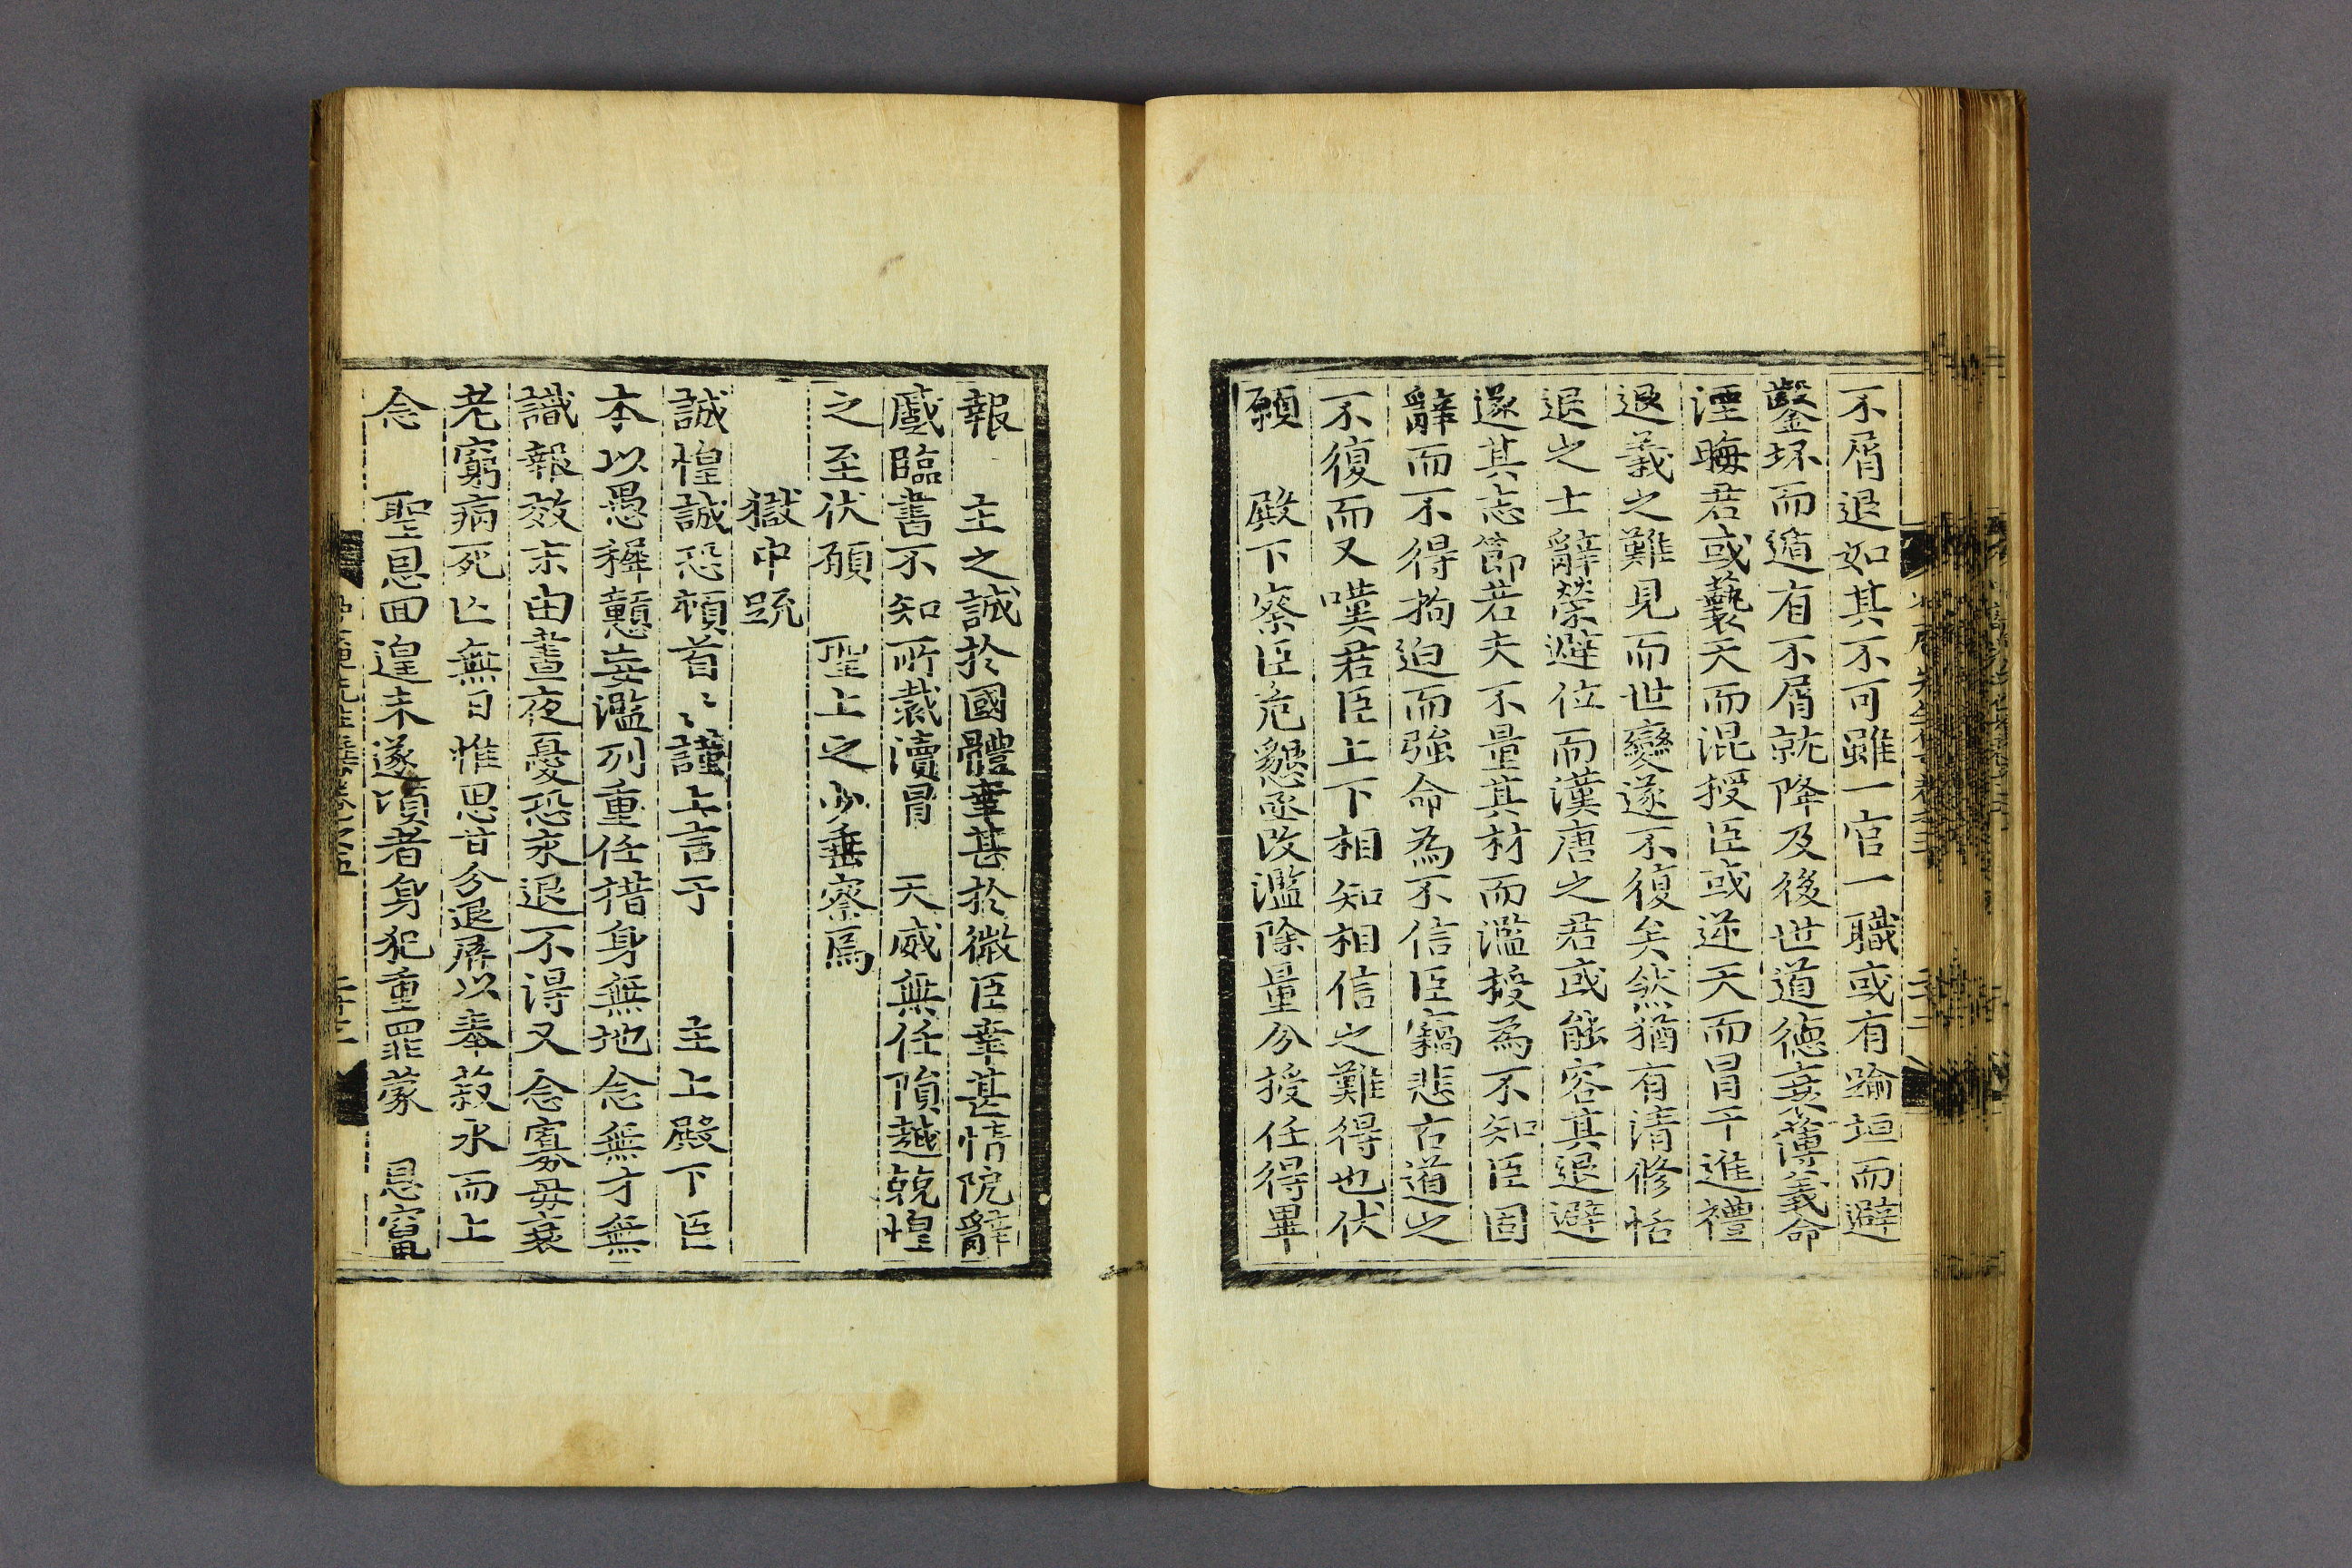 不屑退如其不可雖一官一職或有踰垣而避
鑿坏而遁有不屑就降及後世道德衰薄義命
湮晦君或褻天而混授臣或逆天而冒干進禮
退義之難見而世變遂不復矣然猶有清修恬
退之士辭榮避位而漢唐之君或能容其退避
遂其志節若夫不量其材而濫授為不知臣固
辭而不得拘迫而強命為不信臣竊悲古道之
不復而又嘆君臣上下相知相信之難得也伏
願 殿下察臣危懇亟改濫除量分授任得畢
報 主之誠於國體幸甚於微臣幸甚情阨辭
蹙臨書不知所裁瀆冒 天威無任隕越兢惶
之至伏願 聖上之少垂察焉
獄中疏
誠惶誠恐頓首〻〻謹上言于 主上殿下臣
本以愚稺戇妄濫列重任措身無地念無才無
識報效末由晝夜憂恐求退不得又念寡母衰
老窮病死亡無日惟思甘分退屏以奉菽水而上
念 聖恩回遑未遂頃者身犯重罪蒙 恩竄